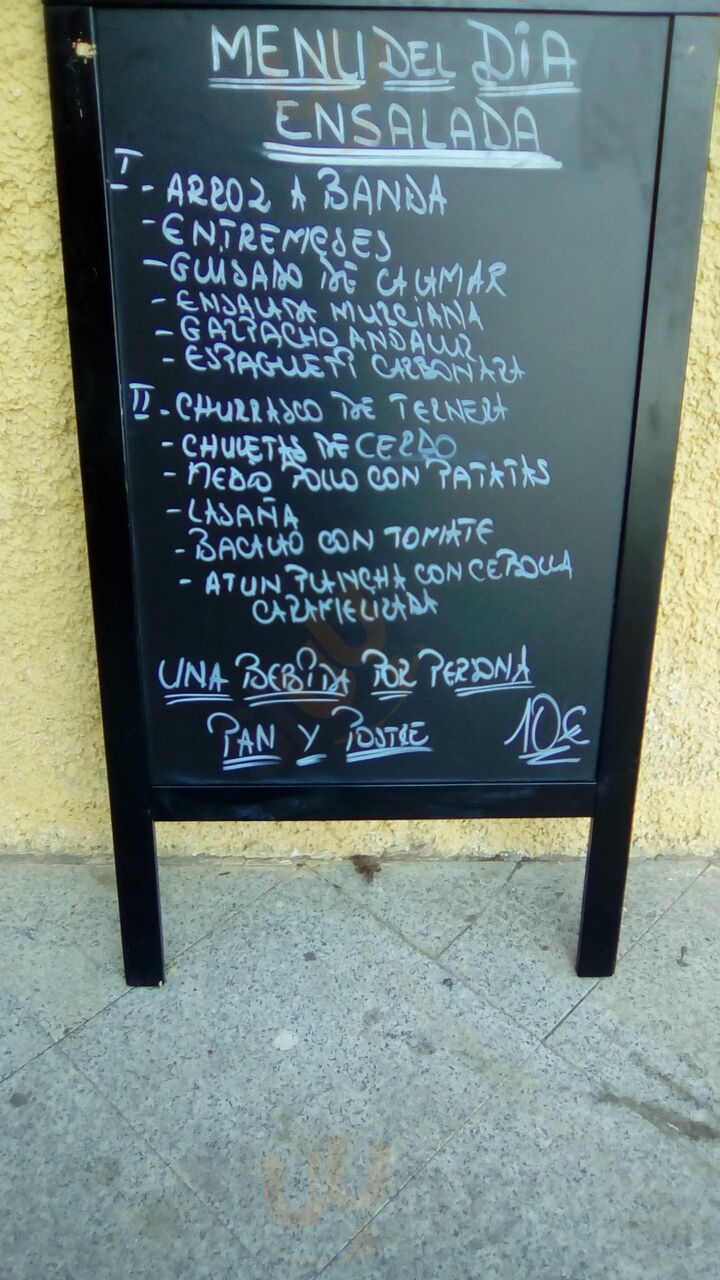 MENU DEL DIA
ENSALADA
I - ARROZ A BANDA
- ENTREMESES
- GUISADO DE CALAMAR
- ENSALADA MURCIANA
- GAZPACHO ANDALUZ
- ESPAGUETI CARBONARA
II - CHURRASCO DE TERNERA
- CHULETAS DE CERDO
- MEDIO POLLO CON PATATAS
- LASAÑA
- BACALAO CON TOMATE
- ATUN PLANCHA CON CEBOLLA
CARAMELIZADA
UNA BEBIDA POR PERSONA
PAN Y POSTRE 10€